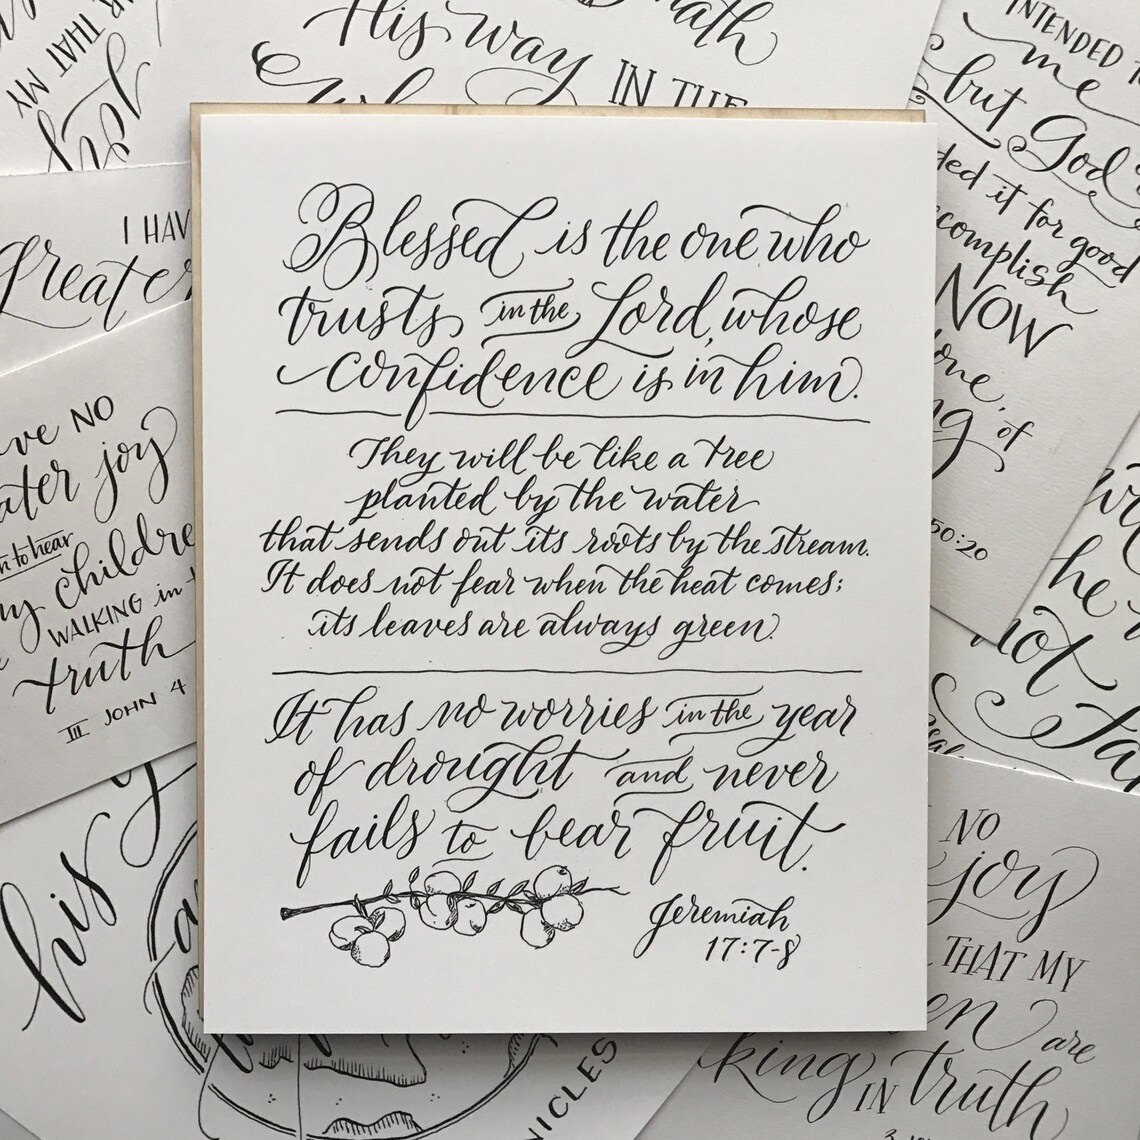 Blessed is the one who
trusts in the Lord, whose
confidence is in him.
They will be like a tree
planted by the water
that sends out its roots by the stream.
It does not fear when the heat comes;
its leaves are always green.
It has no worries in the year
of drought and never
fails to bear fruit.
Jeremiah
17:7-8
THAT MY
His way
IN THE
INTENDED
me
but God
it for good
NOW
of
50:20
he
not
I HAV
greater
NO
joy
to hear
my children
WALKING in
truth
III JOHN 4
his
NO
joy
THAT MY
are
IN truth